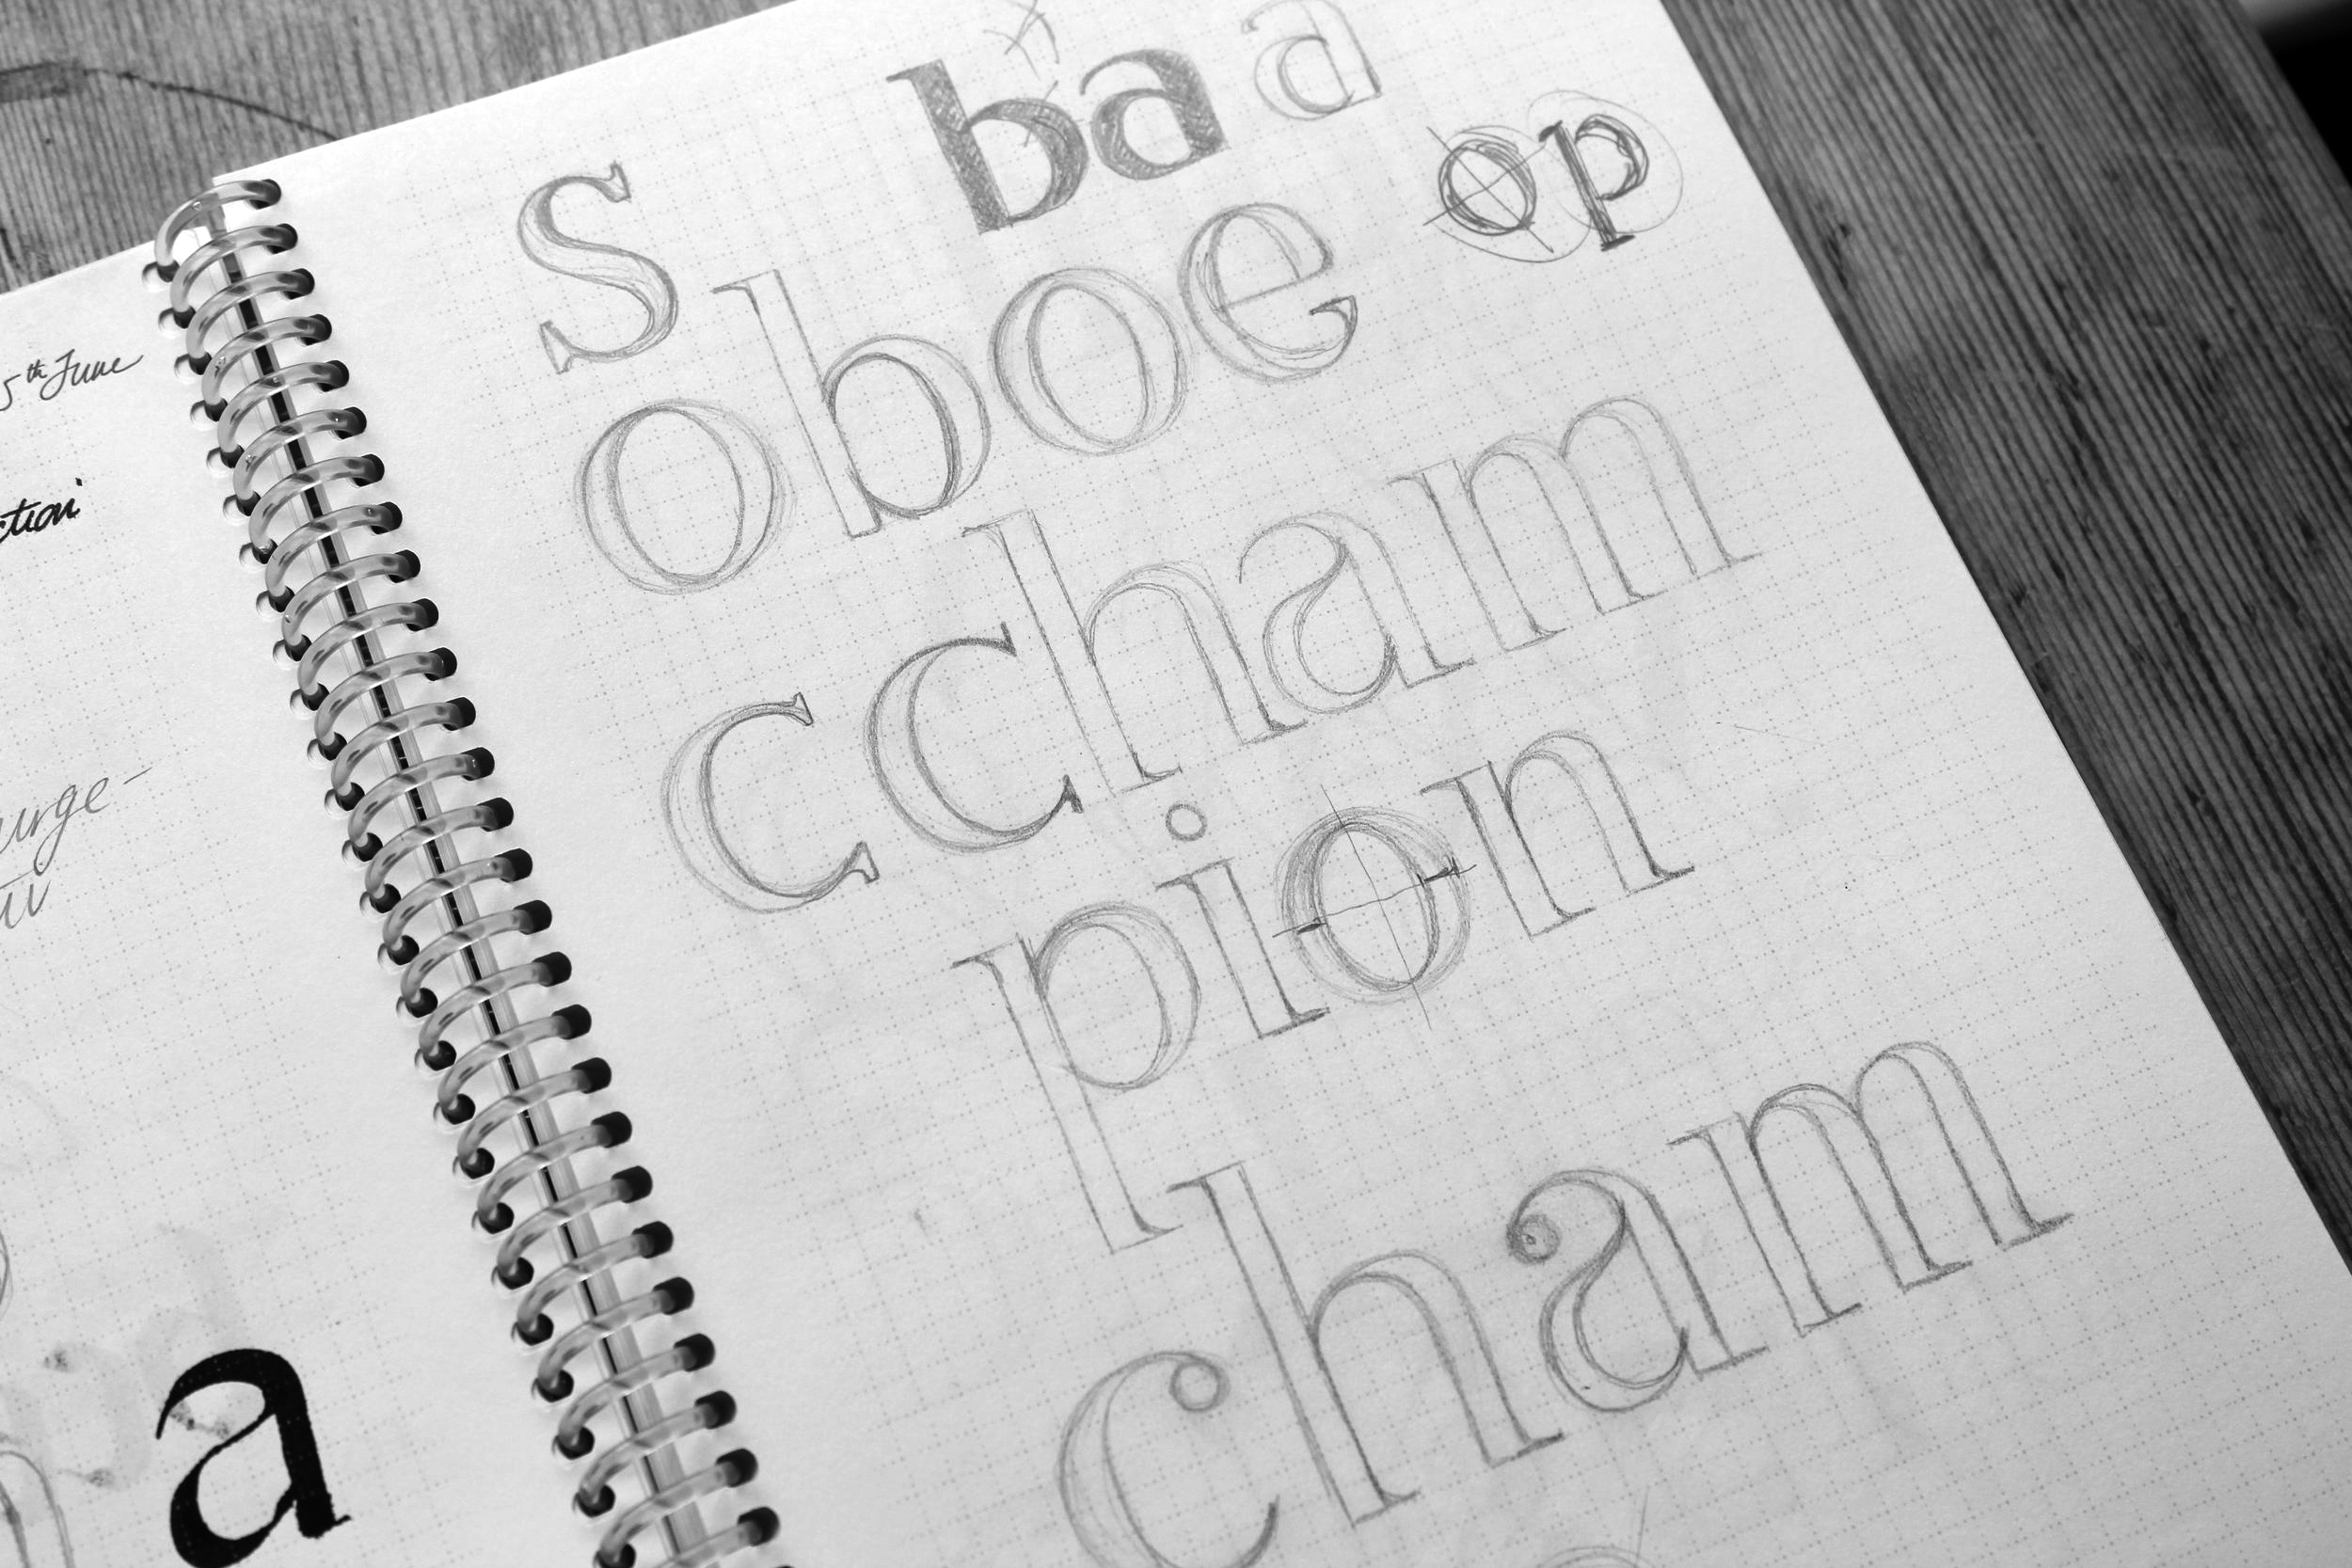 5th June
ction
urge-
a
ba a
op
s
oboe
c cham
pion
cham